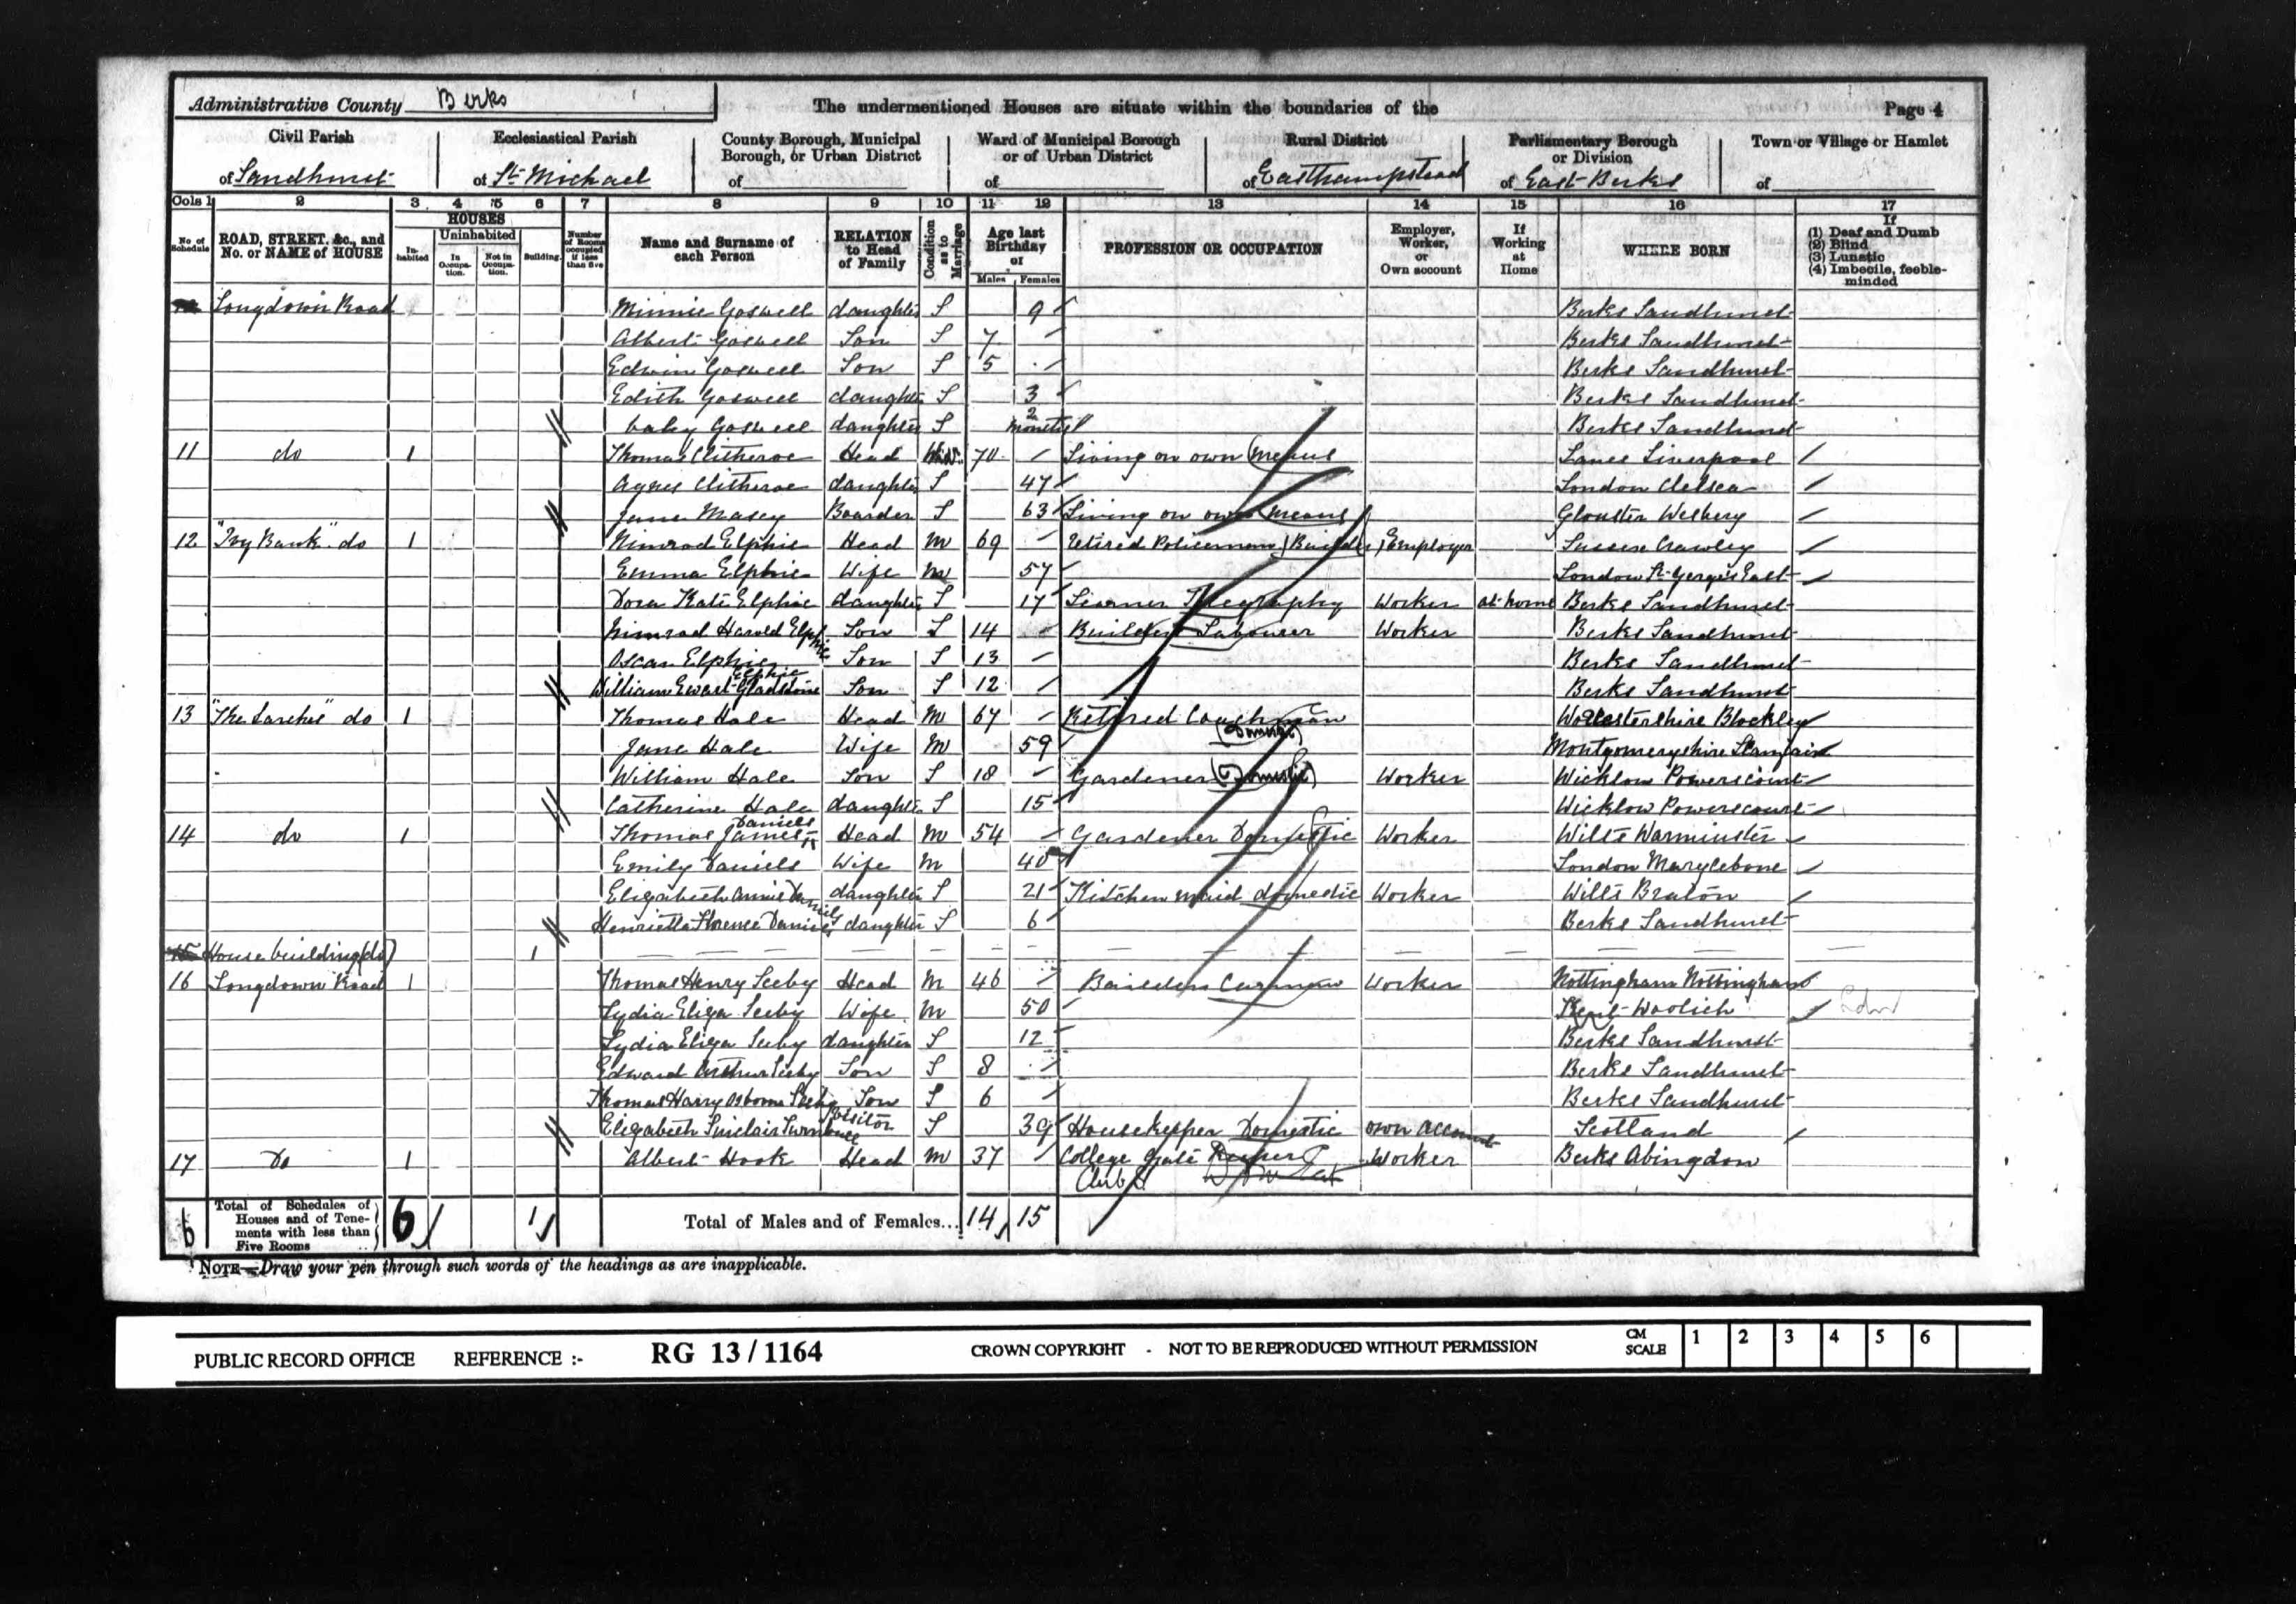 Administrative County Berks The undermentioned Houses are situate within the boundaries of the Page 4
Civil Parish Ecclesiastical Parish County Borough, Municipal Borough, or Urban District Ward of Municipal Borough or of Urban District Rural District Parliamentary Borough or Division Town or Village or Hamlet
of Sandhurst of St Michael of of of Easthampstead of East Berks of
Cols 1 2 3 4 5 6 7 8 9 10 11 12 13 14 15 16 17
No of Schedule ROAD, STREET, &c., and No. or NAME of HOUSE HOUSES Inhabited Uninhabited In Occupation. Not in Occupation. Building. Number of Rooms occupied if less than five Name and Surname of each Person RELATION to Head of Family Condition as to Marriage Age last Birthday of Males Females PROFESSION OR OCCUPATION Employer, Worker, or Own account If Working at Home WHERE BORN If (1) Deaf and Dumb (2) Blind (3) Lunatic (4) Imbecile, feeble-minded
Longdown Road Minnie Goswell daughter S 9 Berks Sandhurst
Albert Goswell Son S 7 Berks Sandhurst
Edwin Goswell Son S 5 Berks Sandhurst
Edith Goswell daughter S 3 Berks Sandhurst
baby Goswell daughter S 2 months Berks Sandhurst
11 do 1 Thomas Clitheroe Head Wid. 70 Living on own means Lancs Liverpool
Agnes Clitheroe daughter S 47 London Chelsea
Jane Masey Boarder S 63 Living on own means Glouster
12 "Ivy Bank" do 1 Nimrod Elphic Head M 69 retired Policeman (Builder) Employer Sussex Crawley
Emma Elphic Wife M 57 London St Gerges East
Dora Kate Elphic daughter S 17 Learner Telegraphy Worker at home Berks Sandhurst
Nimrod Harold Elphic Son S 14 Builders Labourer Worker Berks Sandhurst
Oscar Elphic Son S 13 Berks Sandhurst
William Ewart Gladstone Elphic Son S 12 Berks Sandhurst
13 "The Larches" do 1 Thomas Hale Head M 67 Retired Coachman (Domestic) Worcestershire Blockley
Jane Hale Wife M 59 Montgomeryshire Llanfair
William Hale Son S 18 Gardener (Domestic) Worker Wicklow Powerscourt
Catherine Hale daughter S 15 Wicklow Powerscourt
14 do 1 Thomas James Daniels Head M 54 Gardener Domestic Worker Wilts Warminster
Emily Daniels Wife M 40 London Marylebone
Elizabeth Annie Daniels daughter S 21 Kitchen maid domestic Worker Wilts Bratón
Henrietta Florence Daniels daughter S 6 Berks Sandhurst
15 House building (do) 1
16 Longdown Road 1 Thomas Henry Seeby Head M 46 Builders Carman Worker Nottingham Nottingham
Lydia Eliza Seeby Wife M 50 Kent Woolich
Lydia Eliza Seeby daughter S 12 Berks Sandhurst
Edward Arthur Seeby Son S 8 Berks Sandhurst
Thomas Harry Osborne Seeby Son S 6 Berks Sandhurst
Elizabeth Sinclair Turnbull Visitor S 39 Housekeeper Domestic own account Scotland
17 Do 1 Albert Hook Head M 37 College Gate Keeper Worker Berks Abingdon
6 Total of Schedules of Houses and of Tenements with less than Five Rooms 6 1 Total of Males and of Females... 14 15
NOTE—Draw your pen through such words of the headings as are inapplicable.
PUBLIC RECORD OFFICE REFERENCE :- RG 13 / 1164 CROWN COPYRIGHT - NOT TO BE REPRODUCED WITHOUT PERMISSION CM SCALE 1 2 3 4 5 6